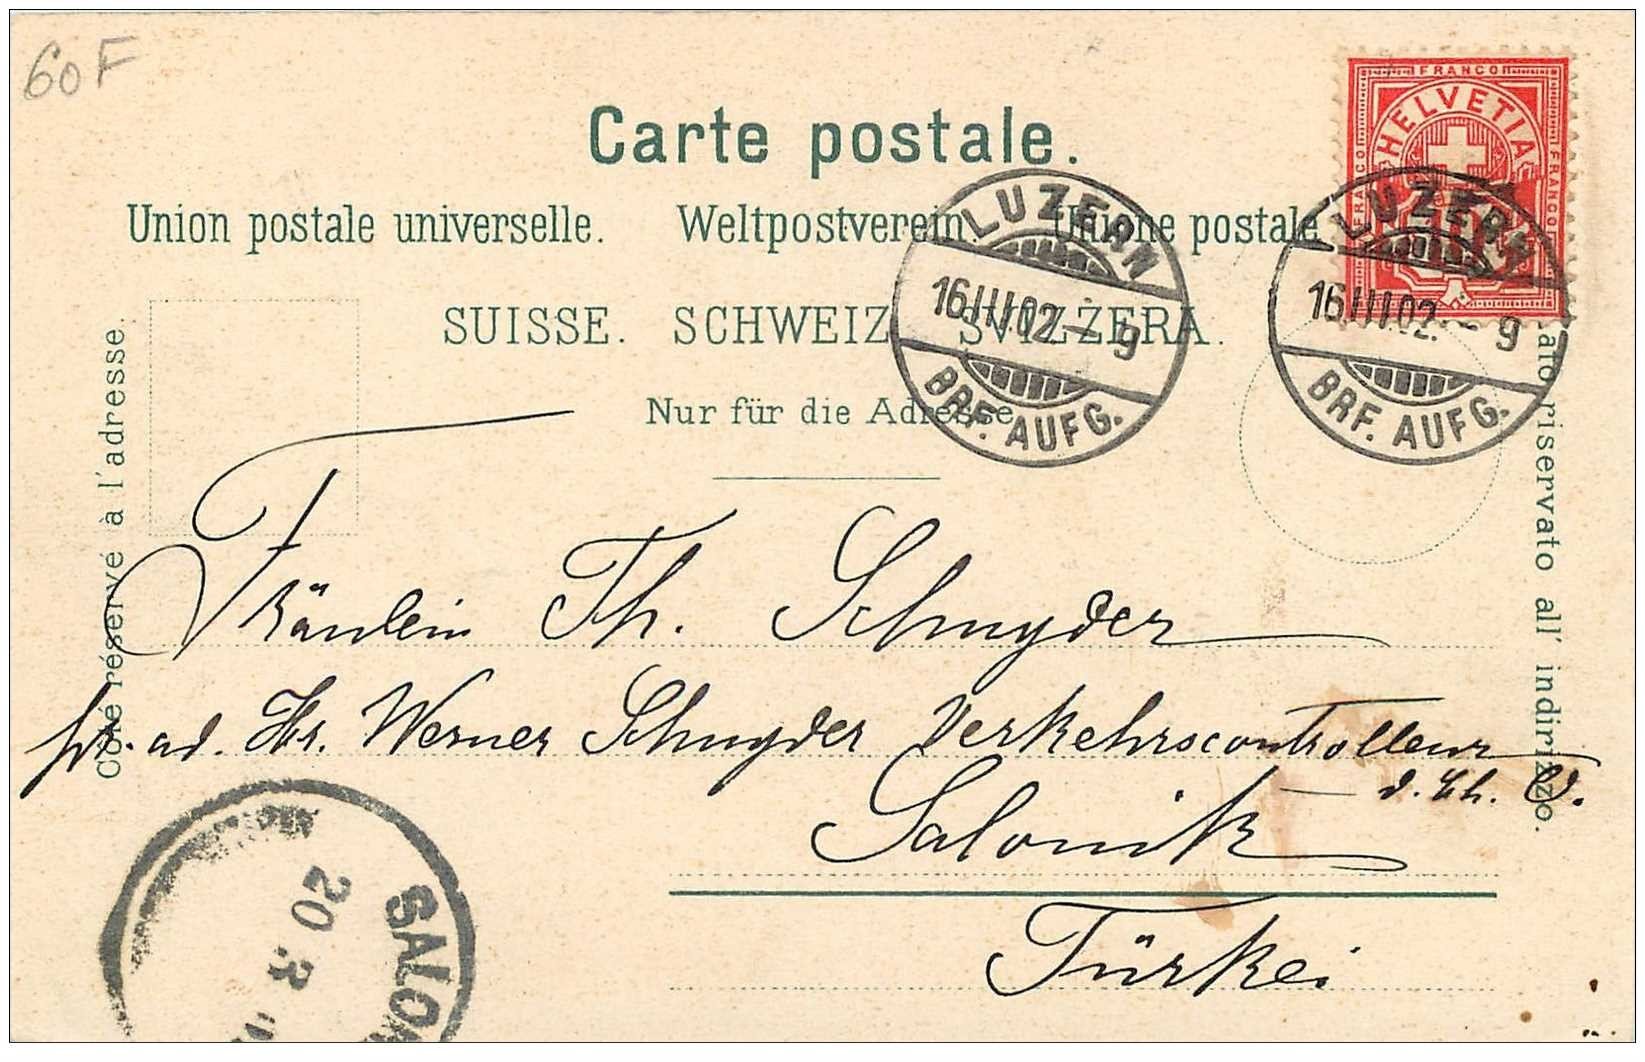 60F
Carte postale.
FRANCO
FRANCO
FRANCO
HELVETIA
10
Union postale universelle. Weltpostverein. Unione postale
SUISSE. SCHWEIZ. SVIZZERA.
Nur für die Adresse.
LUZERN
16.III.02.-9
BRF. AUFG.
LUZERN
16.III.02.-9
BRF. AUFG.
Côté réservé à l'adresse.
ato riservato all' indirizzo.
Fräulein Th. Schnyder
pr. ad. Hr. Werner Schnyder Verkehrscontrolleur
d. Ch. O.
Salonik
Türkei
SALON
20 3